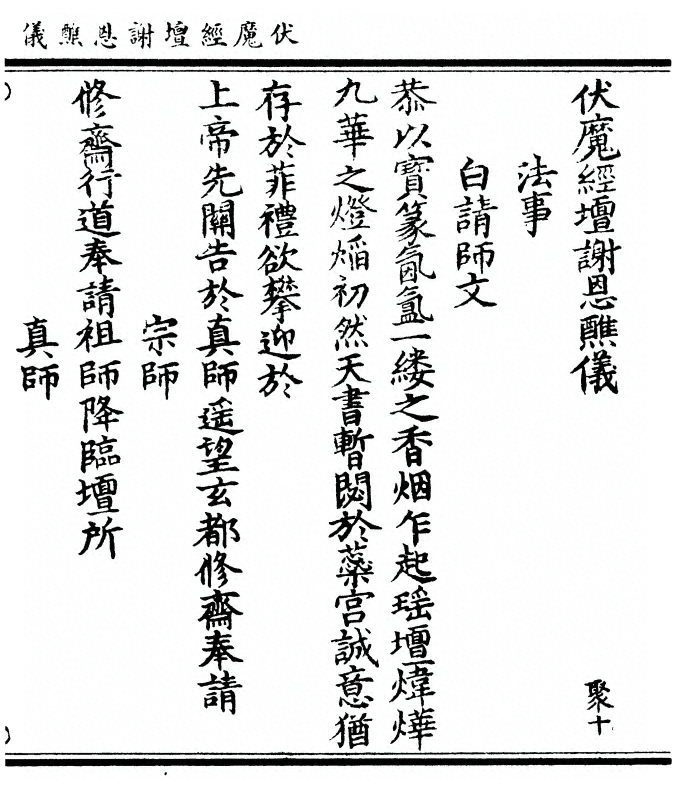 伏魔經壇謝恩醮儀
伏魔經壇謝恩醮儀
聚十
法事
白請師文
恭以寶篆氤氲一縷之香烟乍起瑶壇煒燁
九華之燈熖初然天書暫閟於蘂宫誠意猶
存於菲禮欲攀迎於
上帝先關告於真師遥望玄都修齋奉請
宗師
修齋行道奉請祖師降臨壇所
真師